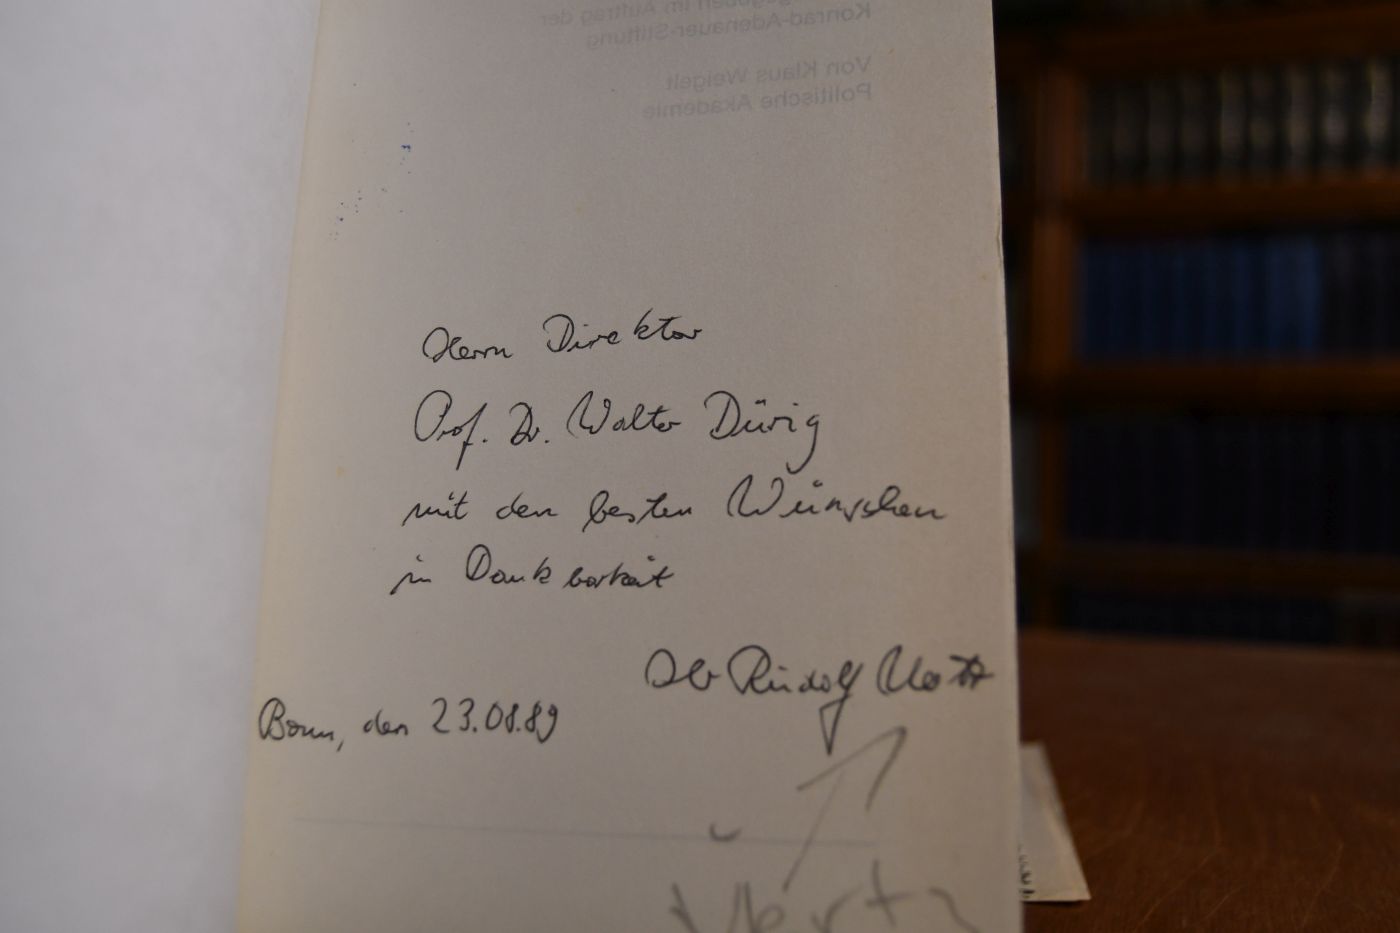 im Auftrag der
Konrad-Adenauer-Stiftung
Von Klaus Weigelt
Politische Akademie
Herrn Direktor
Prof. Dr. Walter Dürig
mit den besten Wünschen
in Dankbarkeit
Rudolf
Bonn, den 23.08.89